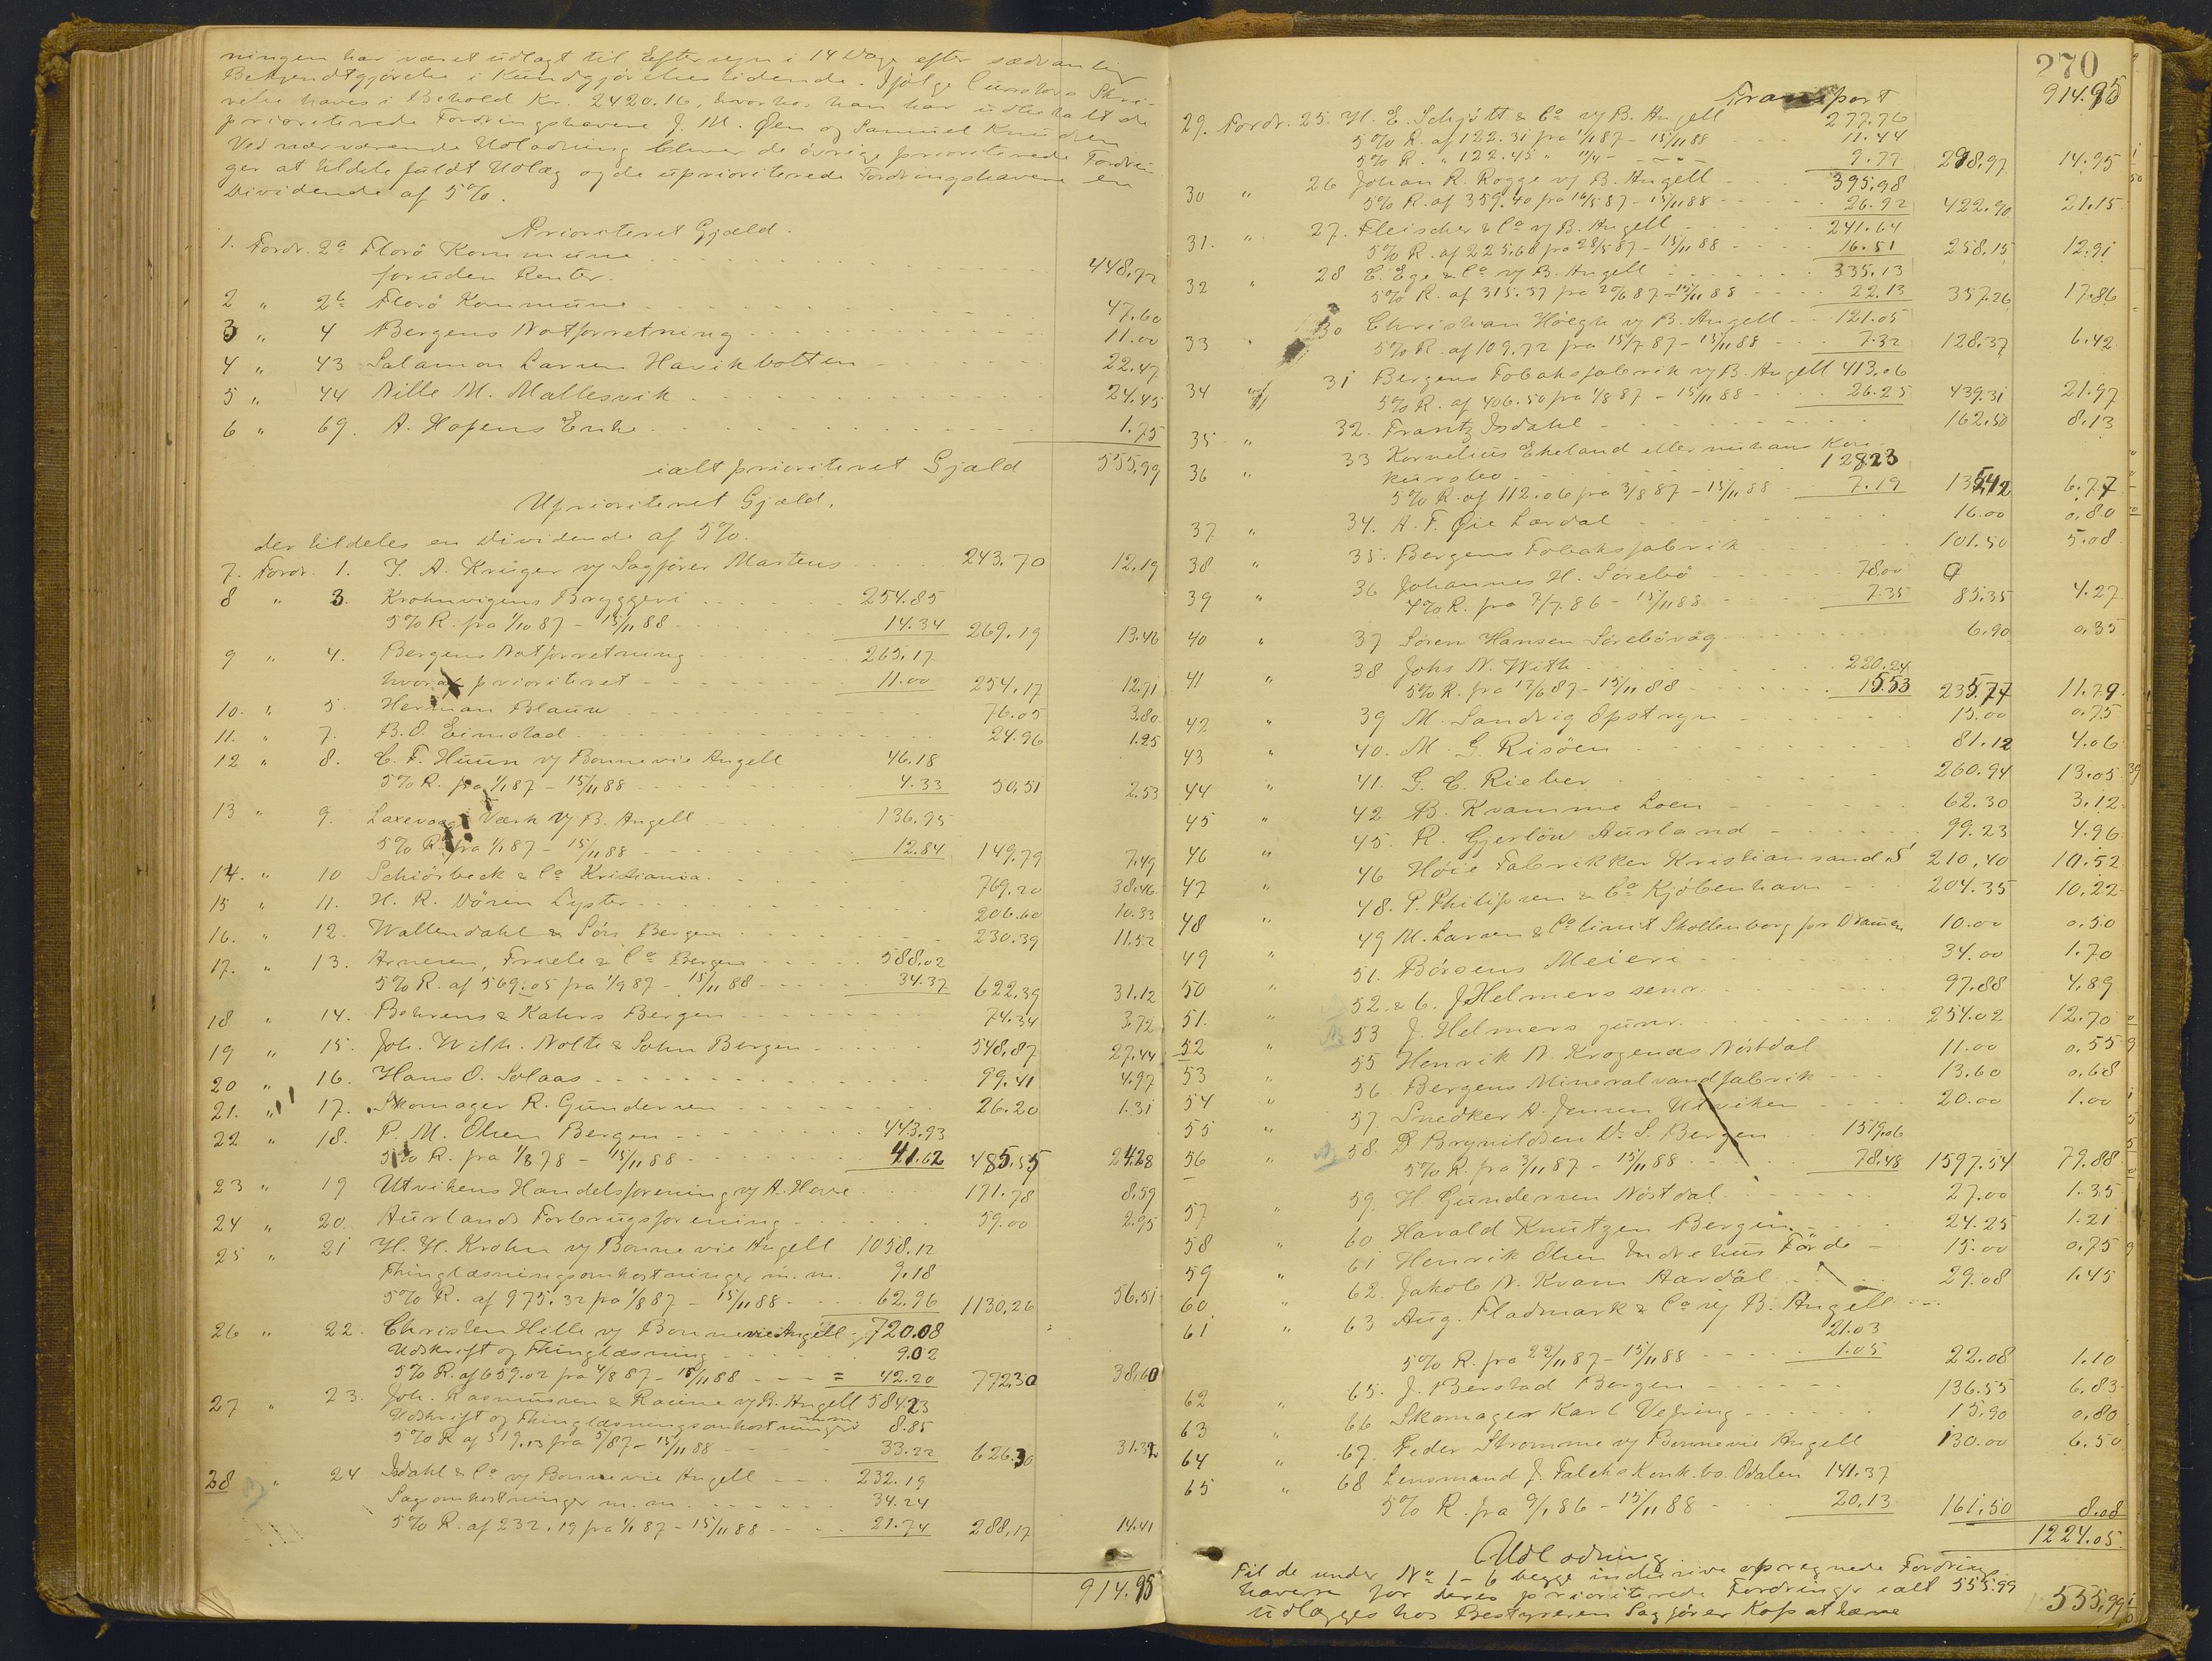 ningen har været udlagt til Eftersyn i 14 Dage efter sædvanlig
Bekjendtgjørelse i Kundgjørelsestidende. Ifølge Curators Skri-
velse haves i Behold Kr. 2420.16, hvorhos han har udbetalt de
prioriterede Fordringshavere J. M. Øen og Samuel Knudsen
Ved nærværende Udlodning bliver de øvrige prioriterede Fordrin-
ger at tildele fuldt Udlæg og de uprioriterede Fordringshavere en
Dividende af 5%.
Prioriteret Gjæld.
1. Fordr. 2a Florö Kommune 448,72
foruden Renter.
2 " 2b Florö Kommune 47.60
3 " 4 Bergens Notforretning 11.00
4 " 43 Salamon Larsen Havikbotten 22.47
5 " 44 Nille M. Mallesvik 24.45
6 " 69. A. Hopens Enke 1.75
ialt prioriteret Gjæld 555,99
Uprioriteret Gjæld,
der tildeles en Dividende af 5%.
7. Fordr. 1. J. A. Krüger v/ Sagfører Martens 243.70 12.19
8 " 3. Krohnvigens Bryggeri 254.85
5% R. fra 1/10 87 - 15/11 88 14.34 269.19 13.46
9 " 4. Bergens Notforretning 265.17
hvoraf prioriteret 11.00 254.17 12.71
10. " 5. Herman Blauw 76.05 3.80
11. " 7. B. O. Eimstad 24.96 1.25
12 " 8. C. F. Huun v/ Bonnevie Angell 46.18
5% R. fra 1/1 87 - 15/11 88 4.33 50,51 2.53
13 " 9. Laxevaags Værk v/ B. Angell 136.95
5% R. fra 1/1 87 - 15/11 88 12.84 149,79 7.49
14. " 10 Schiörbeck & Co Kristiania. 769.20 38.46
15 " 11. H. R. Dösen Lyster 206.60 10.33
16. " 12. Wallendahl & Sön Bergen 230.39 11.52
17. " 13. Arnesen, Friele & Co Bergen 588.02
5% R. af 569.05 fra 1/9 87 - 15/11 88 34.37 622.39 31.12
18 " 14. Behrens & Kahrs Bergen 74.34 3.72
19 " 15. Joh. Wilh. Nolte & Sohn Bergen 548,87 27.44
20 " 16. Hans O. Solaas 99.41 4.97
21. " 17. Skomager R. Gundersen 26.20 1.31
22 " 18. P. M. Olsen Bergen 443.93
5% R. fra 1/8 78 - 15/11 88 41.62 485,55 24.28
23 " 19 Utvikens Handelsforening v/ A. Hove 171.78 8.59
24 " 20. Aurlands Forbrugsforening 59.00 2.95
25 " 21 H. H. Krohn v/ Bonnevie Angell 1058.12
Thinglæsningsomkostninger m. m. 9.18
5% R. af 975.32 fra 1/8 87 - 15/11 88 62.96 1130,26 56.51
26 " 22. Christen Hille v/ Bonnevie Angell 720.08
Udskrift og Thinglæsning 9.02
5% R. af 659.02 fra 4/8 87 - 15/11 88 = 42.20 772.30 38,60
27 " 23. Joh. Rasmussen & Racine v/ B. Angell 584.23
Udskrift og Thinglæsningsomkostninger m.m. 8.85
5% R af 519.13 fra 5/8 87 - 15/11 88 33.22 626.30 31.32
28 " 24 Isdahl & Co v/ Bonnevie Angell 232.19
Sagsomkostninger m. m. 34.24
5% R. af 232.19 fra 1/1 87 - 15/11 88 21.74 288,17 14.41
914.95
270
Transport 914.95
29. Fordr. 25. H. E. Schjött & Co v/ B. Angell 277.76
5% R. af 122.31 fra 1/1 87 - 15/11 88 11.44
5% R. " 122.45 " 11/4 - 9.77 298,97 14.95
30 " 26 Johan R. Rogge v/ B. Angell 395,98
5% R. af 359.40 fra 16/5 87 - 15/11 88 26.92 422.90 21.15
31. " 27. Fleischer & Co v/ B. Angell 241.64
5% R. af 225.68 fra 28/5 87 - 15/11 88 16.51 258.15 12.91
32 " 28 C. Ege & Co v/ B. Angell 335.13
5% R. af 315.37 fra 20/6 87 - 15/11 88 22.13 357.26 17.86
33 " 30 Christian Höegh v/ B. Angell 121.05
5% R. af 109,72 fra 15/7 87 - 15/11 88 7.32 128.37 6.42
34 " 31 Bergens Tobaksfabrik v/ B. Angell 413.06
5% R. af 406.50 fra 1/8 87 - 15/11 88 26.25 439.31 21.97
35 " 32. Frantz Isdahl 162.50 8.13
36 " 33 Kornelius Ekeland eller nu hans Kon-
kursbo 128.23
5% R. af 112.06 fra 3/8 87 - 15/11 88 7.19 135,42 6.77
37 " 34. A. F. Øie Lærdal 16.00 0.80
38 " 35. Bergens Tobaksfabrik 101.50 5.08
39 " 36 Johannes H. Sörebö 78.00
4% R. fra 7/7 86 - 15/11 88 7.35 85.35 4.27
40 " 37 Sören Hansen Sörebövåg 6.90 0.35
41 " 38 Johs N. With 220.24
5% R. fra 17/6 87 - 15/11 88 15.53 235.77 11.79
42 " 39 M. Sandvig Opstryn 15.00 0.75
43 " 40. M. G. Risöen 81.12 4.06
44 " 41. G. C. Rieber 260.94 13.05
45 " 42 B. Kvamme Loen 62.30 3.12
46 " 45. R. Gjerlöw Aurland 99.23 4.96
47 " 46 Höie Fabrikker Kristiansand S 210,40 10.52
48 " 48. P. Philipsen & Co Kjöbenhavn 204.35 10.22
49 " 49 M. Larsen & Co limit Skollenborg pr Dramen 10.00 0.50
50 " 51. Börsens Meieri 34.00 1.70
51. " 52. & 6. J Helmers senr. 97.88 4.89
52 " 53 J. Helmers junr. 254.02 12.70
53 " 55 Henrik N. Krogenæs Nöstdal 11.00 0.55
54 " 56. Bergens Mineralvandfabrik 13.60 0.68
55 " 57. Snedker A. Jensen Utviken 20.00 1.00
56 " 58. D Brynildsen & S. Bergen 1519.06
5% R. fra 3/11 87 - 15/11 88 78.48 1597.54 79.88
57 " 59. H. Gundersen Nöstdal 27.00 1.35
58 " 60 Harald Knutzen Bergen 24.25 1.21
59 " 61 Henrik Olsen Indrehus Förde 15.00 0.75
60 " 62. Jakob N. Kvam Aardal 29.08 1.45
61 " 63 Aug. Fladmark & Co v/ B. Angell
21.03
5% R. fra 22/11 87 - 15/11 88 1.05 22.08 1.10
62 " 65. J. Berstad Bergen 136.55 6.83
63 " 66 Skomager Karl Vefring 15.90 0.80
64 " 67. Peder Strømme v/ Bonnevie Angell 130.00 6.50
65 " 68 Lensmand J. Falchs Konk. bo. Odalen 141.37
5% R. fra 9/1 86 - 15/11 88 20.13 161.50 8.08
1224.05.
Udlodning
Til de under No 1-6 begge inclusive opregnede Fordrings-
havere for deres prioriterede Fordringer ialt 555.99
udlægges hos Bestyreren Sagfører Koss at hæve 555,99